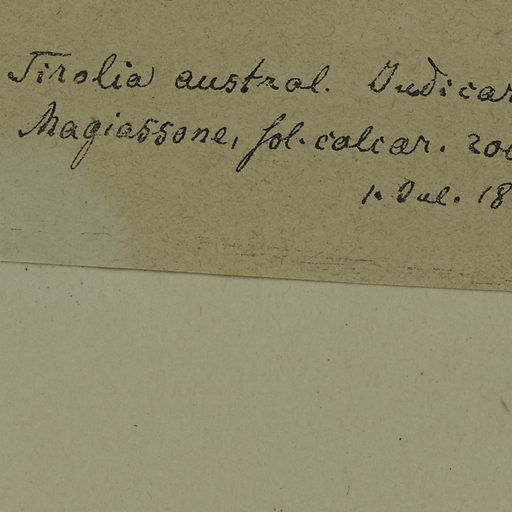 Tirolia austral. Judicar
Magiassone, sol. calcar. 200
1. Jul. 18